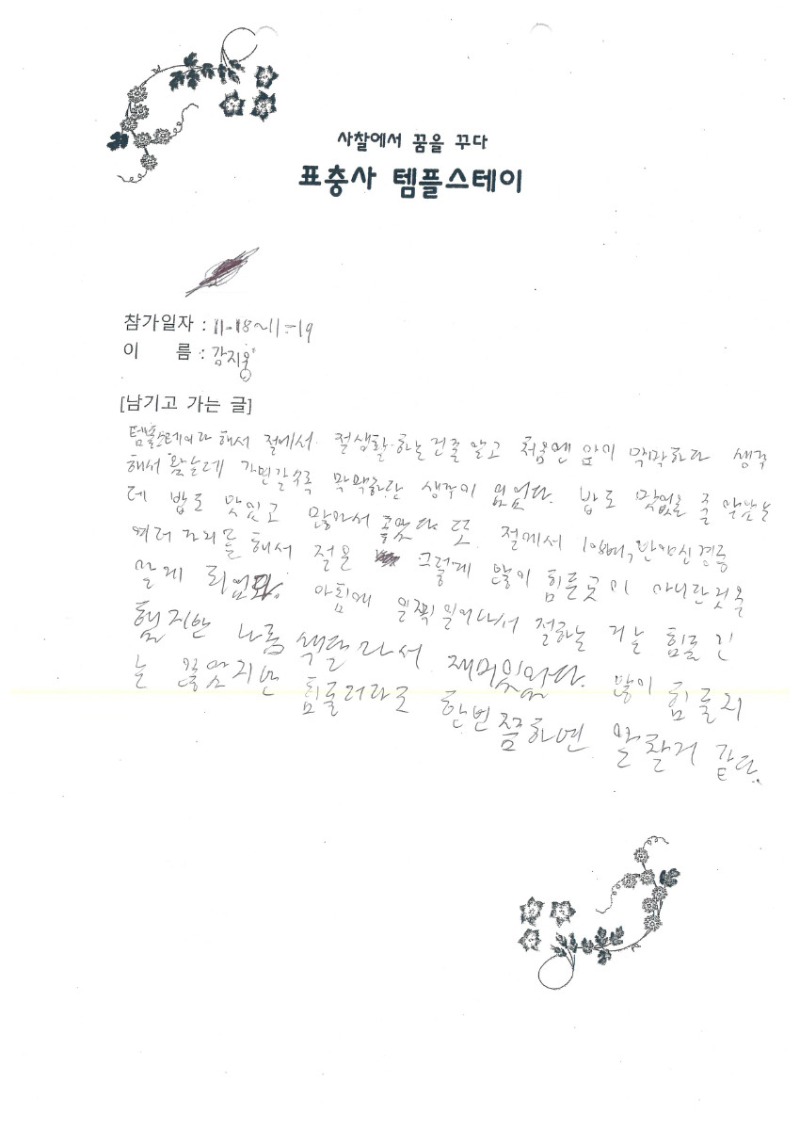 사찰에서 꿈을 꾸다
표충사 템플스테이
참가일자 : 11-18~11-19
이 름 : 강지웅
[남기고 가는 글]
템플스테이라 해서 절에서 절생활 하는건줄 알고 처음엔 앞이 막막하다 생각
해서 왔는데 가면갈수록 막막하단 생각이 없었다. 밥도 맛없을 줄 알았는
데 밥도 맛있고 많아서 좋았다 또 절에서 108배,
여러 가지를 해서 절은 그렇게 많이 힘든곳이 아니란것을
알게 되었다. 아침에 일찍 일어나서 절하는 거는 힘들 긴
했지만 나름 색달라서 재미있었다. 많이 힘들지
는 않았지만 힘들더라도 한번쯤하면 알찰거 같다.